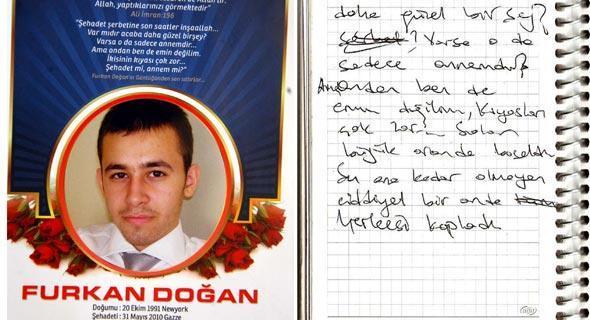 Allah, yaptıklarınızı görmektedir"
Ali İmran:156
"Şehadet şerbetine son saatler inşaallah...
Var mıdır acaba daha güzel birşey?
Varsa o da sadece annemdir...
Ama andan ben de emin değilim.
İkisinin kıyası çok zor...
Şehadet mi, annem mi?"
Furkan Doğan'ın Günlüğünden son satırlar...
FURKAN DOĞAN
Doğumu : 20 Ekim 1991 Newyork
Şehadeti : 31 Mayıs 2010 Gazze
daha güzel bir şey?
? Varsa o da
sadece annemdir?
Ama ben de
emin değilim, Kıyasları
çok zor?
büyük oranda
Şu ana kadar olmayan
ciddiyet bir anda
herkesi kapladı